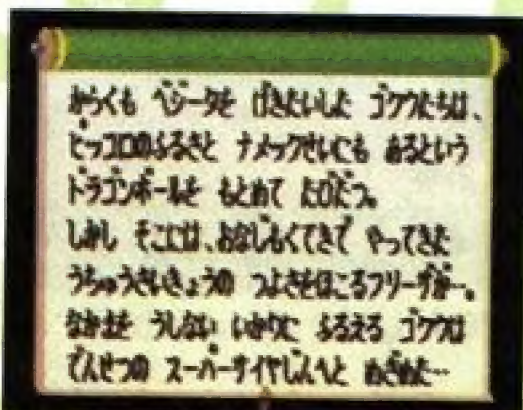 からくも ベジータを げきたいした ゴクウたちは、
ピッコロのふるさと ナメックせいにも あるという
ドラゴンボールを もとめて たびだつ。
しかし そこには、おなじもくてきで やってきた
うちゅうさいきょうの つよさをほこるフリーザが…。
なかまを うしない いかりに ふるえる ゴクウは
でんせつの スーパーサイヤじんへと めざめた…